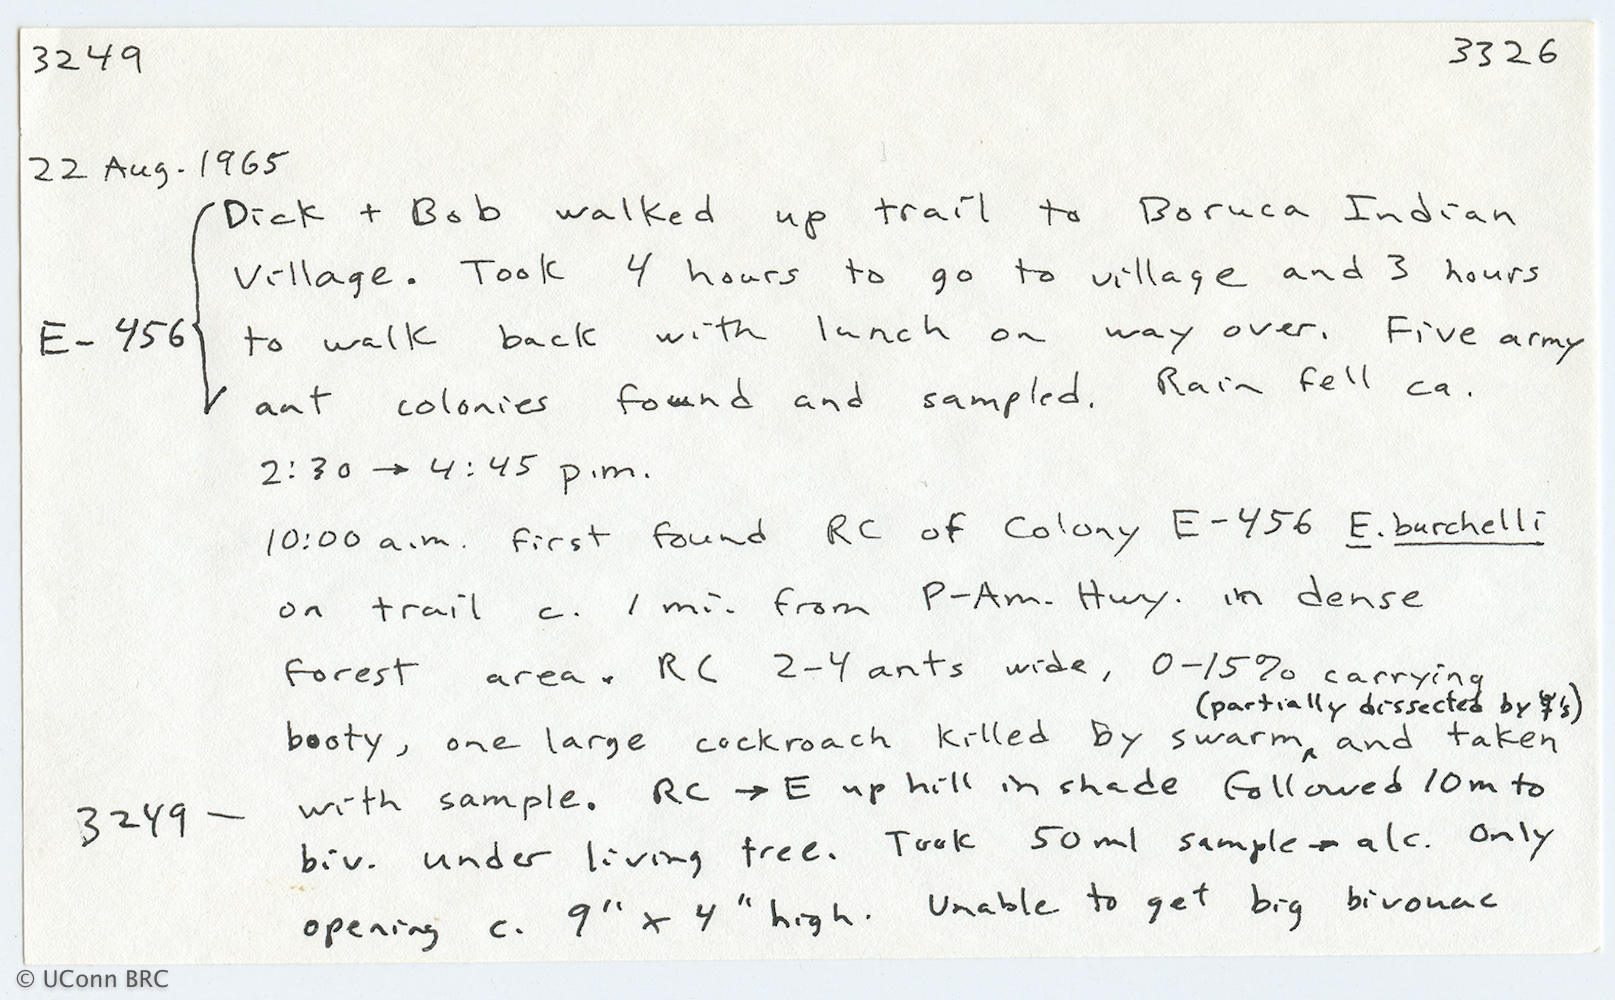 3249 3326
22 Aug. 1965
Dick + Bob walked up trail to Boruca Indian
Village. Took 4 hours to go to village and 3 hours
E-456 to walk back with lunch on way over. Five army
ant colonies found and sampled. Rain fell ca.
2:30 → 4:45 p.m.
10:00 a.m. first found RC of Colony E-456 E. burchelli
on trail c. 1 mi. from P-Am. Hwy. in dense
forest area. RC 2-4 ants wide, 0-15% carrying
(partially dissected by 's)
booty, one large cockroach killed by swarm ^ and taken
with sample. RC → E up hill in shade followed 10m to
3249 —
biv. under living tree. Took 50 ml sample → alc. Only
opening c. 9" x 4" high. Unable to get big bivouac
© UConn BRC